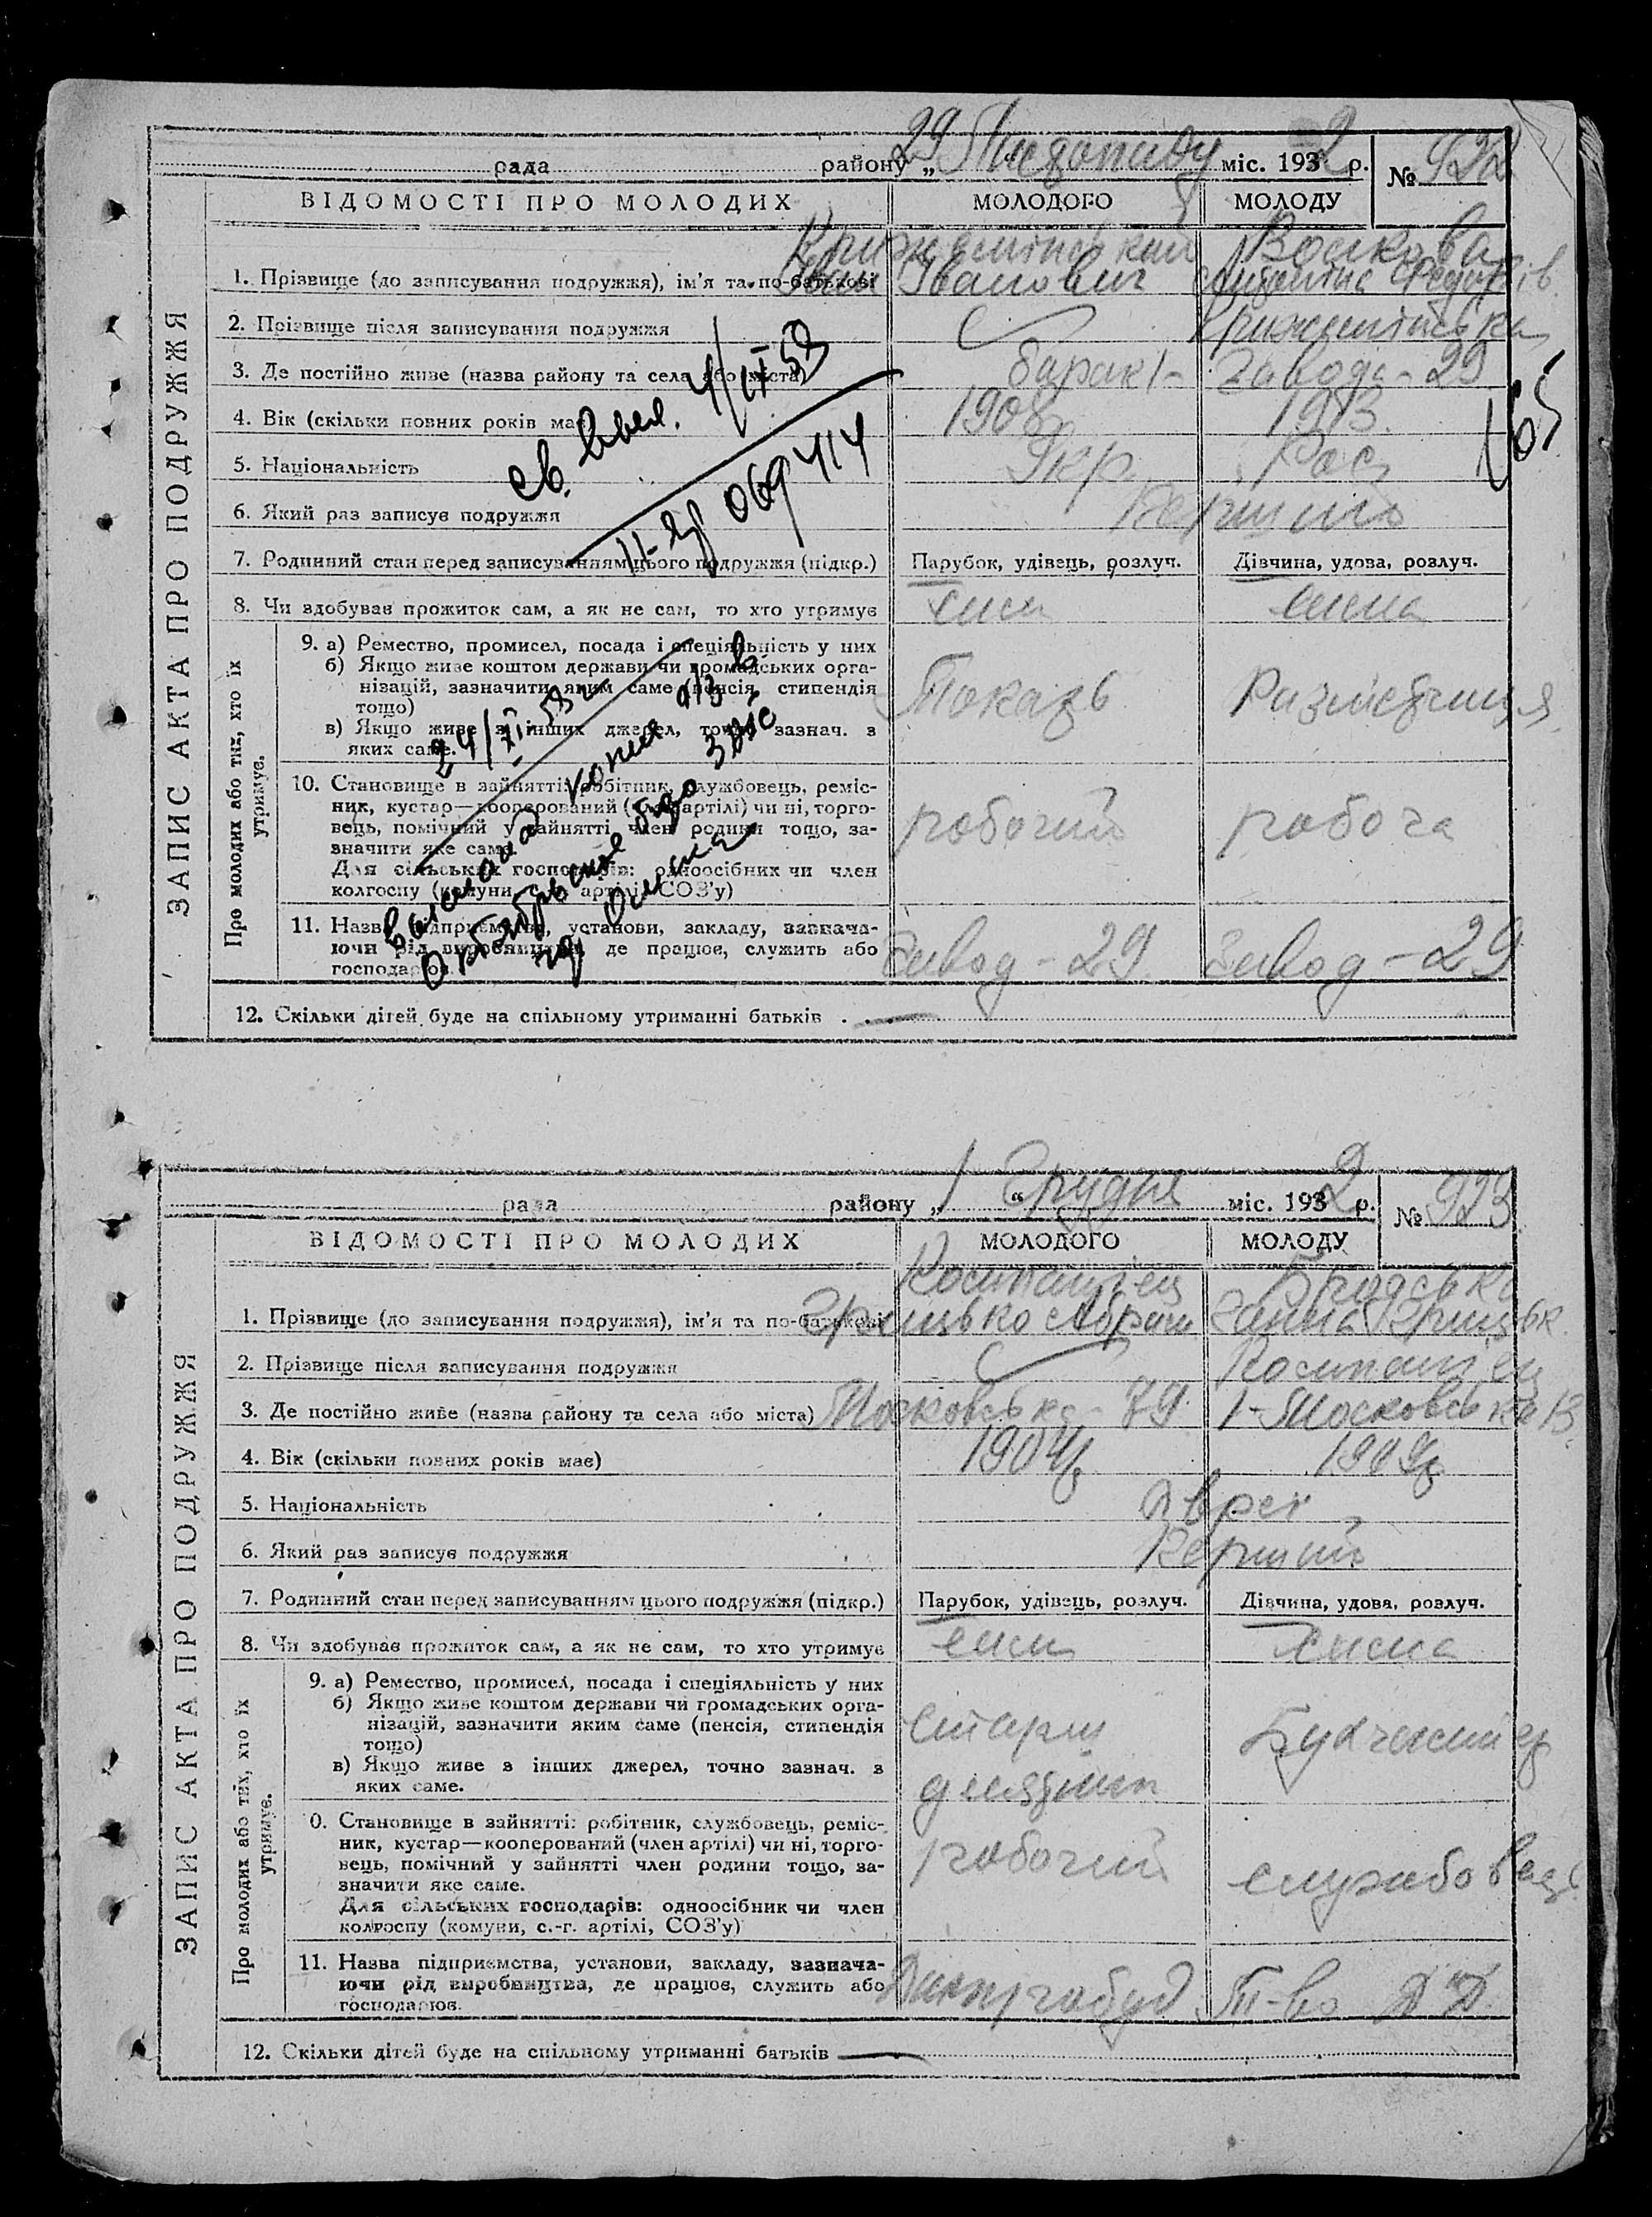 рада району „29 “ Листопаду міс. 1932 р. № 922
ВІДОМОСТІ ПРО МОЛОДИХ МОЛОДОГО МОЛОДУ
ЗАПИС АКТА ПРО ПОДРУЖЖЯ
Волкова
1. Прізвище (до записування подружжя), ім'я та по-батькові Іван Іванович
2. Прізвище після записування подружжя
3. Де постійно живе (назва району та села або міста) барак 1- Завода-29
4. Вік (скільки повних років має) 1908 1913.
165
5. Національність Укр. Рос
6. Який раз записує подружжя Перший
7. Родинний стан перед записуванням цього подружжя (підкр.) Парубок, удівець, розлуч. Дівчина, удова, розлуч.
8. Чи здобував прожиток сам, а як не сам, то хто утримує сам сама
Про молодих або тих, хто їх утримує.
9. а) Ремество, промисел, посада і спеціяльність у них
б) Якщо живе коштом держави чи громадських орга-
нізацій, зазначити яким саме (пенсія, стипендія
тощо)
в) Якщо живе з інших джерел, точно зазнач. з
яких саме.
Токарь Разметчиця
10. Становище в зайнятті: робітник, службовець, реміс-
ник, кустар—кооперований (член артілі) чи ні, торго-
вець, помічний у зайнятті член родини тощо, за-
значити яке саме.
Для сільських господарів: одноосібник чи член
колгоспу (комуни, с.-г. артілі, СОЗ'у)
робочий робоча
11. Назва підприємства, установи, закладу, зазнача-
ючи рід виробництва, де працює, служить або
господарює.
Завод-29 Завод-29
12. Скільки дітей буде на спільному утриманні батьків
св. выд. 4/II 53
069414
24/XI 53 г
выслана копия а/з в
Октябрьское бюро ЗАГС
гор Омска
рада району „1 “ Грудня міс. 1932 р. № 923
ВІДОМОСТІ ПРО МОЛОДИХ МОЛОДОГО МОЛОДУ
ЗАПИС АКТА ПРО ПОДРУЖЖЯ
Бродська
1. Прізвище (до записування подружжя), ім'я та по-батькові Грицько Абрам Ганна
2. Прізвище після записування подружжя
3. Де постійно живе (назва району та села або міста) Московська-79 1-Московська 13
4. Вік (скільки повних років має) 1904р 1909р
5. Національність Євреї
6. Який раз записує подружжя Перший
7. Родинний стан перед записуванням цього подружжя (підкр.) Парубок, удівець, розлуч. Дівчина, удова, розлуч.
8. Чи здобував прожиток сам, а як не сам, то хто утримує сам сама
Про молодих або тих, хто їх утримує.
9. а) Ремество, промисел, посада і спеціяльність у них
б) Якщо живе коштом держави чи громадських орга-
нізацій, зазначити яким саме (пенсія, стипендія
тощо)
в) Якщо живе з інших джерел, точно зазнач. з
яких саме.
Старш Бухгалтер
0. Становище в зайнятті: робітник, службовець, реміс-
ник, кустар—кооперований (член артілі) чи ні, торго-
вець, помічний у зайнятті член родини тощо, за-
значити яке саме.
Для сільських господарів: одноосібник чи член
колгоспу (комуни, с.-г. артілі, СОЗ'у)
робочий службовець
11. Назва підприємства, установи, закладу, зазнача-
ючи рід виробництва, де працює, служить або
господарює.
Т-во
12. Скільки дітей буде на спільному утриманні батьків